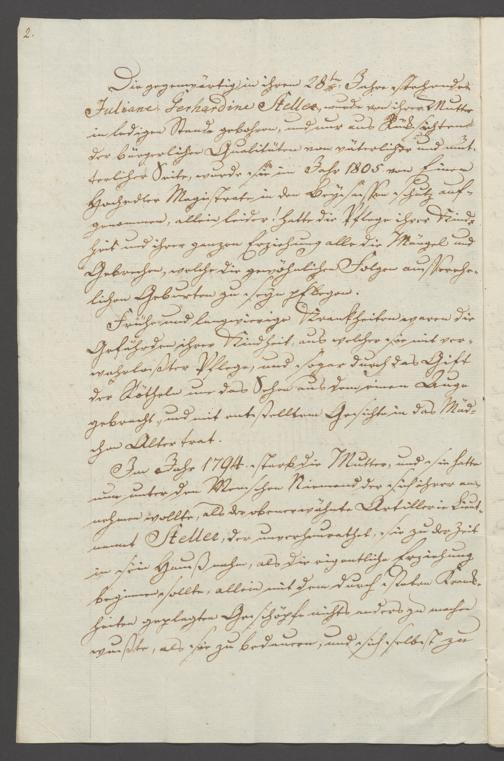 2.
Die gegenwärtig in ihrem 28ten Jahre stehende
Juliane Gerhardine Steller, wurde von ihrer Mutter
im ledigen Stande gebohren, und nur aus Rücksichten
der bürgerlichen Qualitäten von väterlicher und müt-
terlicher Seite, wurde sie im Jahr 1805 von Einem
Hochedlen Magistrate in den Beysassen schutz auf-
genommen, allein leider! hatte die Pflege ihrer Kind-
heit und ihrer ganzen Erziehung alle die Mängel und
Gebrechen, welche die gewöhnlichen Folgen ausserehe-
lichen Geburten zu seyn pflegen.
Frühe und langwierige Krankheiten waren die
Gefährden ihrer Kindheit, aus welcher sie mit ver-
wahrloißter Pflege, und sogar durch das Gift
der Rötheln um das Sehen aus dem einen Auge
gebracht, und mit entstelltem Gesichte in das Mäd-
chen Alter trat.
Im Jahr 1794. starb die Mutter, und sie hatte
nun unter den Menschen Niemand der sich ihrer an-
nehmen wollte, als der obenerwähnte Artillerie Leut-
nannt Steller, der unverheurathet, sie zu der Zeit
in sein Hauß nahm, als die eigentliche Erziehung
beginnen sollte, allein mit dem durch stäten Krank-
heiten geplagten Geschöpfe nichts anders zu machen
wußte, als sie zu bedauern, und sich selbst zu